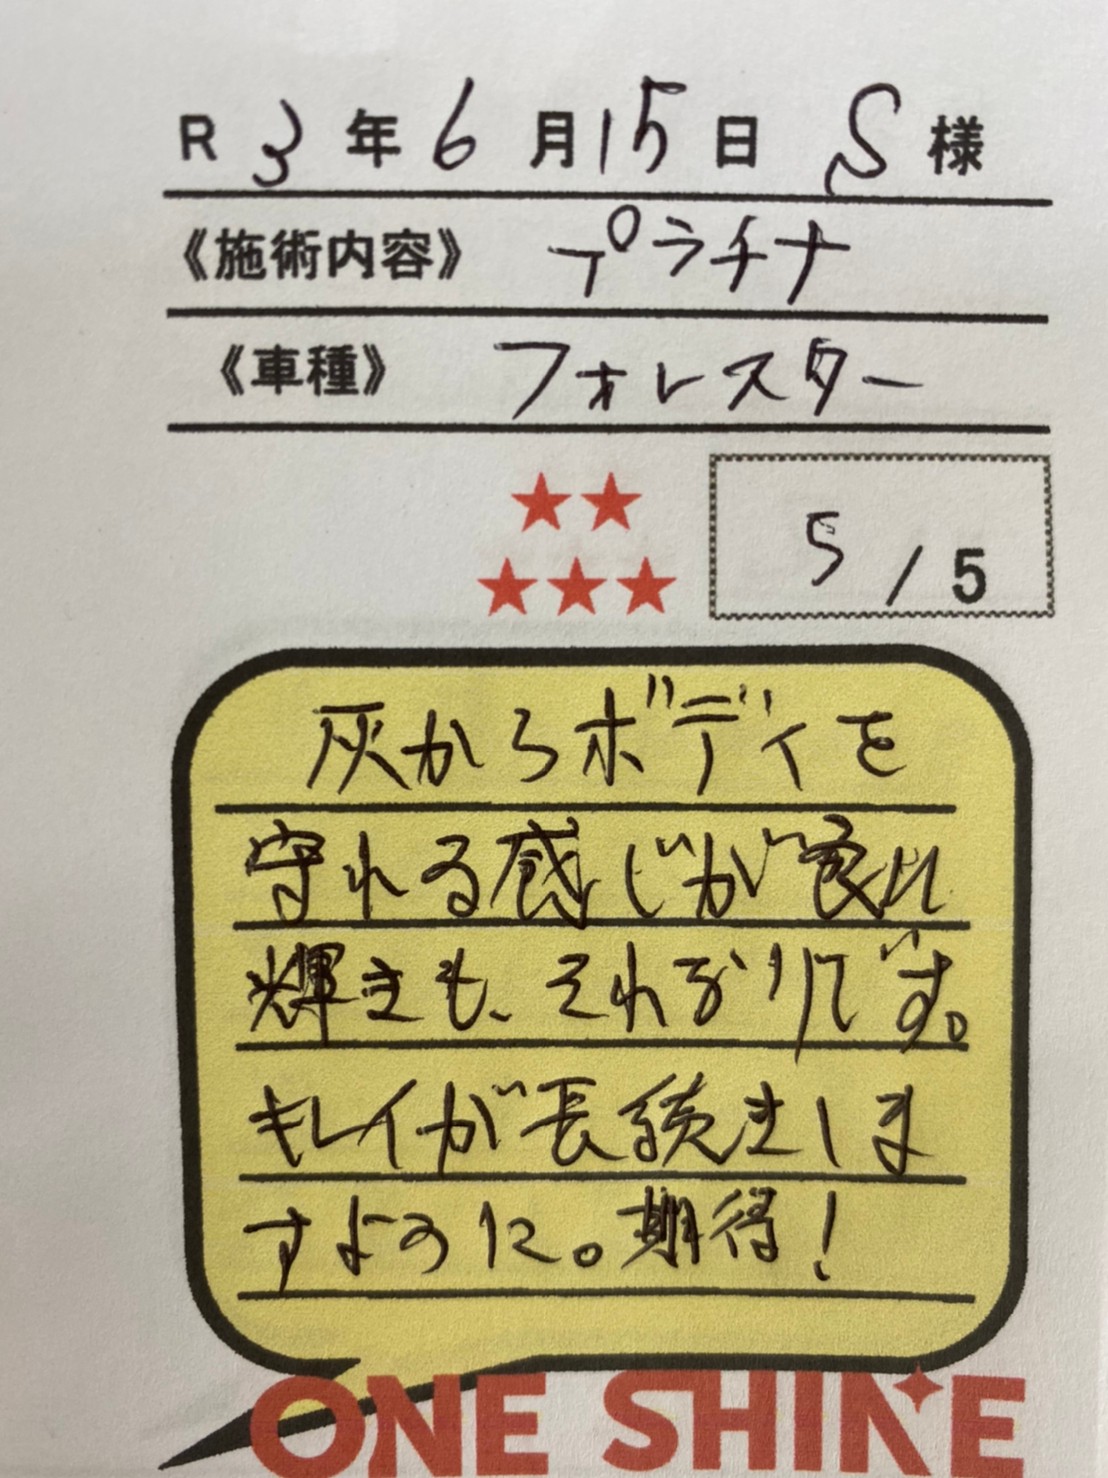 R 3年 6月15日 S様
《施術内容》 プラチナ
《車種》 フォレスター
5/5
灰からボディを
守れる感じが良い
輝きも、それなりです。
キレイが長続きしま
すように。期待!
ONE SHINE